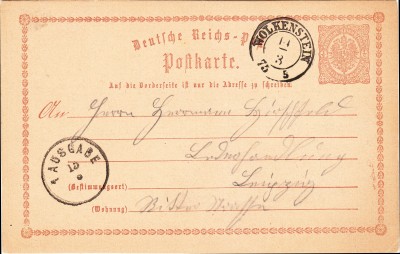 Deutsche Reichs-P
Postkarte.
WOLKENSTEIN
11
3
75
5
Auf die Vorderseite ist nur die Adresse zu schreiben.
An Herrn Herrmann Hirschfeld
Lederhandlung
AUSGABE
(Bestimmungsort) Leipzig
(Wohnung) Ritter Strasse